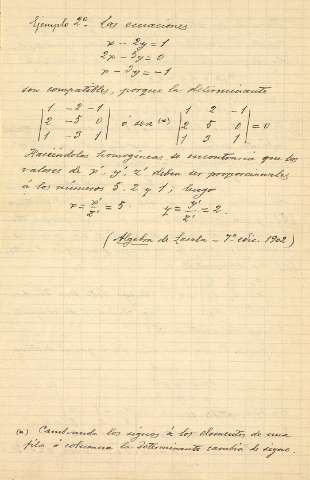 Ejemplo 2º. Las ecuaciones
x - 2y = 1
2x - 5y = 0
x - 3y = -1
son compatibles, porque la determinante
| 1 -2 -1 | | 1 2 -1 |
| 2 -5 0 | ó sea (*) | 2 5 0 | = 0
| 1 -3 1 | | 1 3 1 |
Haciéndolas homogéneas se encontraría que los
valores de x' y' z' deben ser proporcionales
á los números 5. 2 y 1; luego
x = x'/z' = 5 y = y'/z' = 2.
(Algebra de - 7ª edic. 1902)
(*) Cambiando los signos á los elementos de una
fila ó columna la determinante cambia de signo.